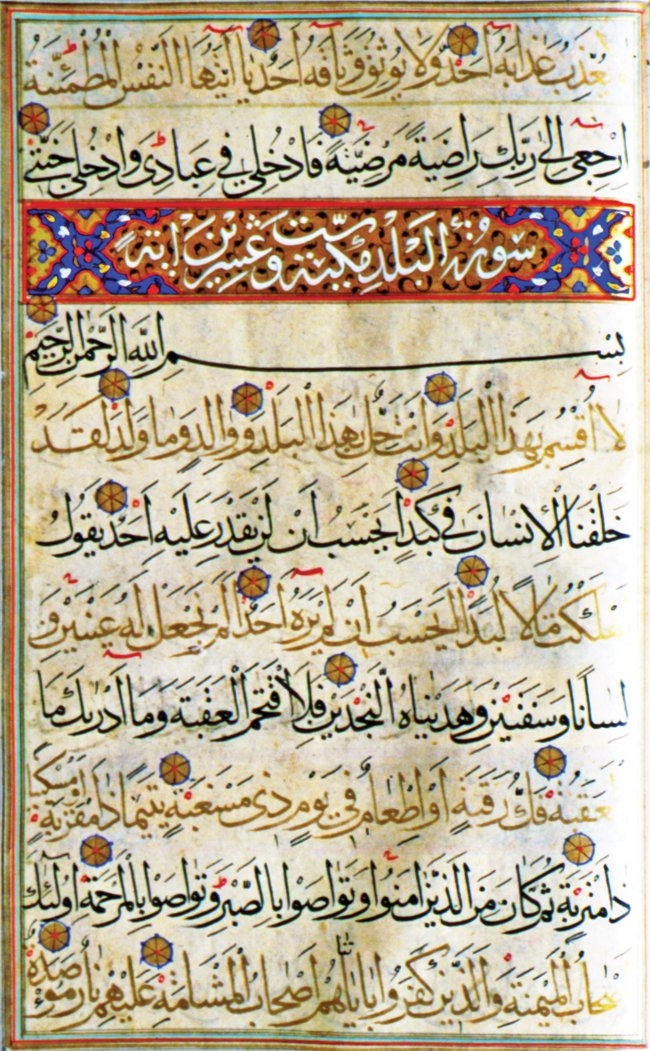 يعذب عذابه احد ولا يوثق وثاقه احد يا ايتها النفس المطمئنة
ارجعي الى ربك راضية مرضية فادخلي في عبادي وادخلي جنتي
سورة البلد مكية وهي عشرين اية
بسم الله الرحمن الرحيم
لا اقسم بهذا البلد وانت حل بهذا البلد ووالد وما ولد لقد
خلقنا الانسان في كبد ايحسب ان لن يقدر عليه احد يقول
اهلكت مالا لبدا ايحسب ان لم يره احد الم نجعل له عينين و
لسانا وشفتين وهديناه النجدين فلا اقتحم العقبة وما ادريك ما
العقبة فك رقبة او اطعام في يوم ذي مسغبة يتيما ذا مقربة او مسكينا
ذا متربة ثم كان من الذين امنوا وتواصوا بالصبر وتواصوا بالمرحمة اولئك
اصحاب الميمنة والذين كفروا باياتنا هم اصحاب المشامة عليهم نار موصدة